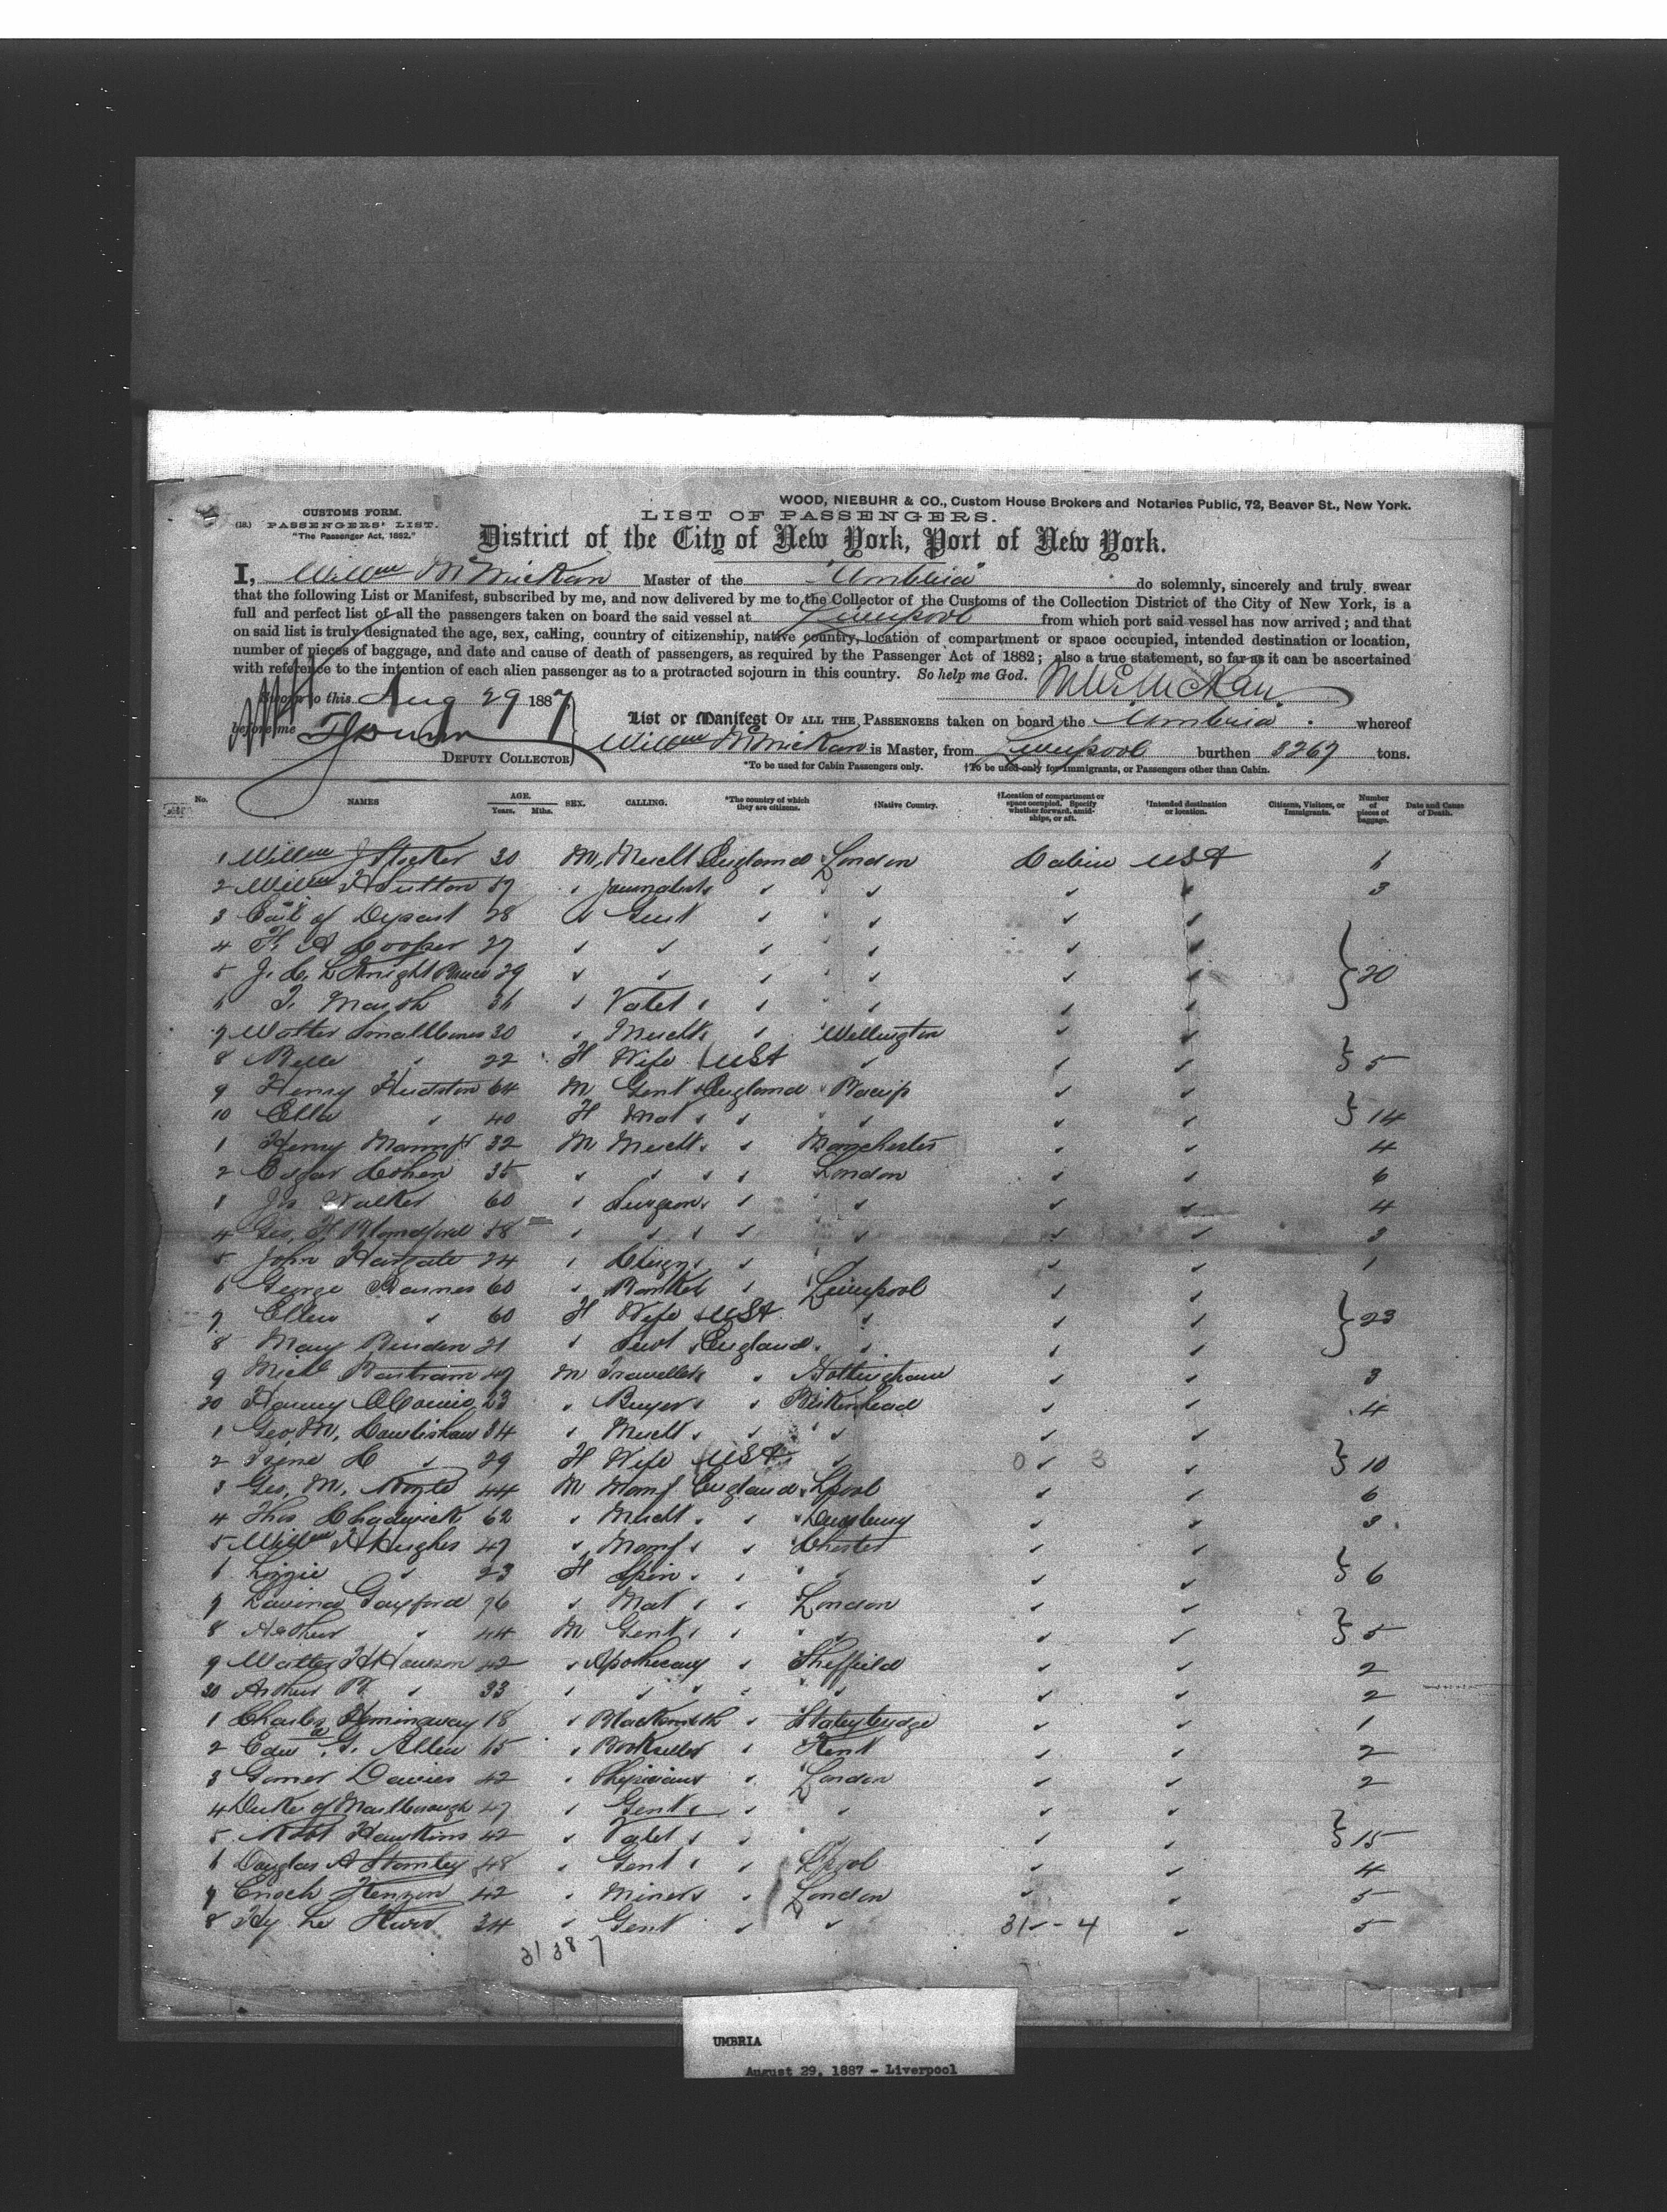 WOOD, NIEBUHR & CO., Custom House Brokers and Notaries Public, 72, Beaver St., New York.
CUSTOMS FORM.
LIST OF PASSENGERS.
(18.) PASSENGERS' LIST.
"The Passenger Act, 1882."
District of the City of New York, Port of New York.
I, Willm McMickan Master of the "Umbria" do solemnly, sincerely and truly swear
that the following List or Manifest, subscribed by me, and now delivered by me to the Collector of the Customs of the Collection District of the City of New York, is a
full and perfect list of all the passengers taken on board the said vessel at Liverpool from which port said vessel has now arrived; and that
on said list is truly designated the age, sex, calling, country of citizenship, native country, location of compartment or space occupied, intended destination or location,
number of pieces of baggage, and date and cause of death of passengers, as required by the Passenger Act of 1882; also a true statement, so far as it can be ascertained
with reference to the intention of each alien passenger as to a protracted sojourn in this country. So help me God.
Sworn to this Aug 29 1887
before me
List or Manifest OF ALL THE PASSENGERS taken on board the "Umbria" whereof
Willm McMickan is Master, from Liverpool burthen 8267 tons.
DEPUTY COLLECTOR
*To be used for Cabin Passengers only. †To be used only for Immigrants, or Passengers other than Cabin.
No. NAMES AGE. Years. Mths. SEX. CALLING. *The country of which they are citizens. †Native Country. †Location of compartment or space occupied. Specify whether forward, amidships, or aft. †Intended destination or location. Citizens, Visitors, or Immigrants. Number of pieces of baggage. Date and Cause of Death.
1 Willm J Stocker 30 M Mercht England London Cabin USA 1
2 Willm H Sutton 57 Journalist 3
3 Earl of Dysart 28 Gent
4 F. A Cooper 27
5 J. C. L Knight Bruce 29 20
6 T. Marsh 31 Valet
7 Walter Smallbones 30 Mercht Wellington
8 Belle 22 F Wife USA 5
9 Henry Hudston 64 M Gent England
10 Ella 40 F Mat 14
1 Henry 32 M Mercht Manchester 4
2 Edgar Cohen 35 London 6
Walker 60 Surgeon 4
4 Geo. F. Blandford 58 3
5 John 24 Clergy 1
6 George Barnes 60 Banker Liverpool
7 Ellen 60 F Wife USA 23
8 Mary 21 Servt England
9 Michl Bartram 49 M Traveller Nottingham 3
20 Harvey 23 Buyer Birkenhead 4
1 Geo M. 34 Mercht
2 Irene C 29 F Wife USA 0 3 10
3 Geo. M. 44 M Manf England Lpool 6
4 Thos Chadwick 62 Mercht 3
5 Willm H Hughes 47 Manf Chester
6 Lizzie 23 F Spin 6
7 Lavinia Gayford 76 Mat London
8 Arthur 44 M Gent 5
9 Walter H Hawson 42 Apothecary Sheffield 2
30 Arthur B. 33 2
1 Charles Hemingway 18 Blacksmith Staleybridge 1
2 Edw G. Allen 65 Bookseller Kent 2
3 Gomer Davies 42 Physician London 2
4 Duke of Marlborough 47 Gent
5 Robt Hawkins 42 Valet 15
6 Douglas A Stanley 48 Gent Lpool 4
7 Enoch 42 Miner London 5
8 Hy Le 34 Gent 31 - 4 5
31387
UMBRIA
August 29, 1887 - Liverpool